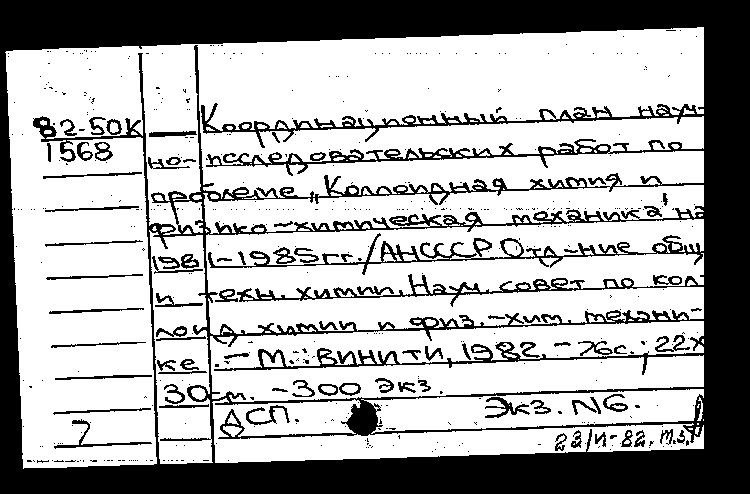 82-50К
1568
Координационный план науч-
но-исследовательских работ по
проблеме „Коллоидная химия и
физико-химическая механика" на
1981-1985гг./АНСССР Отд-ние общ
и техн. химии. Науч. совет по кол-
лоид. химии и физ.-хим. механи-
ке. - М.: ВИНИТИ, 1982. - 76с.; 22х
30см. - 300 экз.
ДСП. Экз. N6.
7